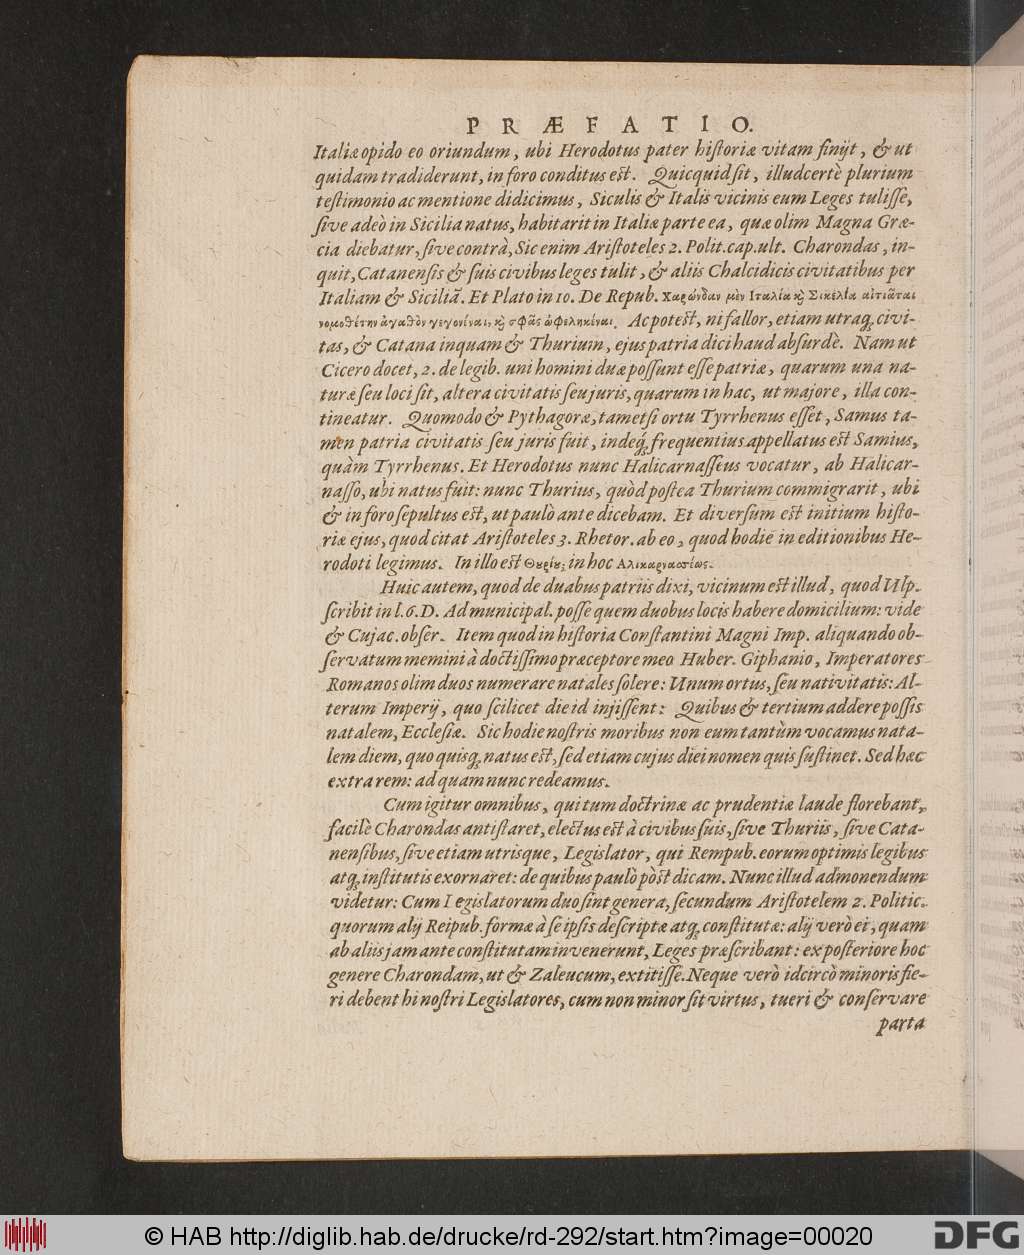 PRÆFATIO.
Italiæ opido eo oriundum, ubi Herodotus pater hiſtoriæ vitam finijt, & ut
quidam tradiderunt, in foro conditus eſt. Quicquid ſit, illud certè plurium
teſtimonio ac mentione didicimus, Siculis & Italis vicinis eum Leges tuliſſe,
ſive adeò in Sicilia natus, habitarit in Italiæ parte ea, quæ olim Magna Græ-
cia diebatur, ſive contrà, Sic enim Ariſtoteles 2. Polit. cap. ult. Charondas, in-
quit, Catanenſis & ſuis civibus leges tulit, & aliis Chalcidicis civitatibus per
Italiam & Siciliã. Et Plato in 10. De Repub. Χαρώνδαν μὲν Ιταλία κ̀ Σικελία αἰτιᾶται
νομοθέτην ἀγαθὸν γεγονέναι, κ̀ σφᾶς ὠφεληκέναι. Ac poteſt, ni fallor, etiam utraq; civi-
tas, & Catana inquam & Thurium, ejus patria dici haud abſurdè. Nam ut
Cicero docet, 2. de legib. uni homini duæ poſſunt eſſe patriæ, quarum una na-
turæ ſeu loci ſit, altera civitatis ſeu juris, quarum in hac, ut majore, illa con-
tineatur. Quomodo & Pythagoræ, tametſi ortu Tyrrhenus eſſet, Samus ta-
men patria civitatis ſeu juris fuit, indeq́; frequentius appellatus eſt Samius,
quàm Tyrrhenus. Et Herodotus nunc Halicarnaſſeus vocatur, ab Halicar-
naſſo, ubi natus fuit: nunc Thurius, quòd poſtea Thurium commigrarit, ubi
& in foro ſepultus eſt, ut paulò ante dicebam. Et diverſum eſt initium hiſto-
riæ ejus, quod citat Ariſtoteles 3. Rhetor. ab eo, quod hodie in editionibus He-
rodoti legimus. In illo eſt Θουρίου; in hoc Αλικαρνασσέως.
Huic autem, quod de duabus patriis dixi, vicinum eſt illud, quod Ulp.
ſcribit in l. 6. D. Ad municipal. poſſe quem duobus locis habere domicilium: vide
& Cujac. obſer. Item quod in hiſtoria Conſtantini Magni Imp. aliquando ob-
ſervatum memini à doctiſſimo præceptore meo Huber. Giphanio, Imperatores
Romanos olim duos numerare natales ſolere: Unum ortus, ſeu nativitatis: Al-
terum Imperij, quo ſcilicet die id injiſſent: Quibus & tertium addere poſſis
natalem, Eccleſiæ. Sic hodie noſtris moribus non eum tantùm vocamus nata-
lem diem, quo quisq; natus eſt, ſed etiam cujus diei nomen quis ſuſtinet. Sed hæc
extra rem: ad quam nunc redeamus.
Cum igitur omnibus, qui tum doctrinæ ac prudentiæ laude florebant,
facilè Charondas antiſtaret, electus eſt à civibus ſuis, ſive Thuriis, ſive Cata-
nenſibus, ſive etiam utrisque, Legislator, qui Rempub. eorum optimis legibus
atq; inſtitutis exornaret: de quibus paulò pòſt dicam. Nunc illud admonendum
videtur: Cum Legislatorum duo ſint genera, ſecundum Ariſtotelem 2. Politic.
quorum alij Reipub. formæ à ſe ipſis deſcriptæ atq; conſtitutæ: alij verò ei, quam
ab aliis jam ante conſtitutam invenerunt, Leges præſcribant: ex poſteriore hoc
genere Charondam, ut & Zaleucum, extitiſſe. Neque verò idcircò minoris fie-
ri debent hi noſtri Legislatores, cum non minor ſit virtus, tueri & conſervare
parta
© HAB http://diglib.hab.de/drucke/rd-292/start.htm?image=00020
DFG